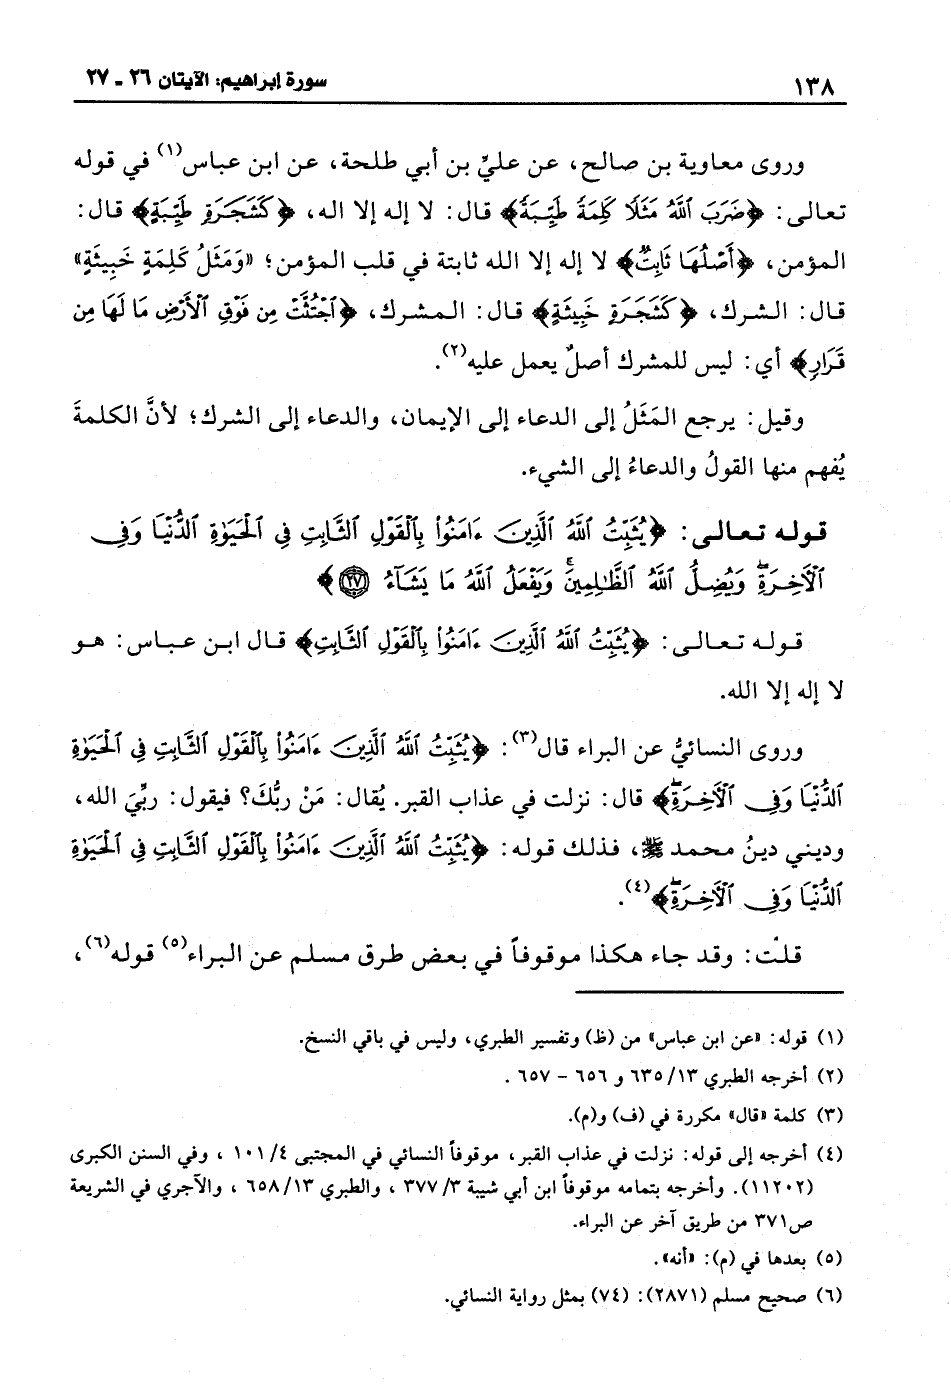 ١٣٨ سورة إبراهيم: الآيتان ٢٦ - ٢٧
وروى معاوية بن صالح، عن عليِّ بن أبي طلحة، عن ابن عباس(١) في قوله
تعالى: ﴿ضَرَبَ ٱللَّهُ مَثَلًا كَلِمَةً طَيِّبَةً﴾ قال: لا إله إلا اله، ﴿كَشَجَرَةٍ طَيِّبَةٍ﴾ قال:
المؤمن، ﴿أَصْلُهَا ثَابِتٌ﴾ لا إله إلا الله ثابتة في قلب المؤمن؛ «وَمَثَلُ كَلِمَةٍ خَبِيثَةٍ»
قال: الشرك، ﴿كَشَجَرَةٍ خَبِيثَةٍ﴾ قال: المشرك، ﴿ٱجْتُثَّتْ مِن فَوْقِ ٱلْأَرْضِ مَا لَهَا مِن
قَرَارٍ﴾ أي: ليس للمشرك أصلٌ يعمل عليه(٢).
وقيل: يرجع المَثَلُ إلى الدعاء إلى الإيمان، والدعاء إلى الشرك؛ لأنَّ الكلمةَ
يُفهم منها القولُ والدعاءُ إلى الشيء.
قوله تعالى: ﴿يُثَبِّتُ ٱللَّهُ ٱلَّذِينَ ءَامَنُوا۟ بِٱلْقَوْلِ ٱلثَّابِتِ فِي ٱلْحَيَوٰةِ ٱلدُّنْيَا وَفِي
ٱلْآخِرَةِۖ وَيُضِلُّ ٱللَّهُ ٱلظَّٰلِمِينَۚ وَيَفْعَلُ ٱللَّهُ مَا يَشَآءُ ٢٧﴾
قوله تعالى: ﴿يُثَبِّتُ ٱللَّهُ ٱلَّذِينَ ءَامَنُوا۟ بِٱلْقَوْلِ ٱلثَّابِتِ﴾ قال ابن عباس: هو
لا إله إلا الله.
وروى النسائيُّ عن البراء قال(٣): ﴿يُثَبِّتُ ٱللَّهُ ٱلَّذِينَ ءَامَنُوا۟ بِٱلْقَوْلِ ٱلثَّابِتِ فِي ٱلْحَيَوٰةِ
ٱلدُّنْيَا وَفِي ٱلْآخِرَةِۖ﴾ قال: نزلت في عذاب القبر. يُقال: مَنْ ربُّكَ؟ فيقول: ربِّيَ الله،
وديني دينُ محمد ﷺ، فذلك قوله: ﴿يُثَبِّتُ ٱللَّهُ ٱلَّذِينَ ءَامَنُوا۟ بِٱلْقَوْلِ ٱلثَّابِتِ فِي ٱلْحَيَوٰةِ
ٱلدُّنْيَا وَفِي ٱلْآخِرَةِۖ﴾(٤).
قلت: وقد جاء هكذا موقوفاً في بعض طرق مسلم عن البراء(٥) قوله(٦)،
(١) قوله: «عن ابن عباس» من (ظ) وتفسير الطبري، وليس في باقي النسخ.
(٢) أخرجه الطبري ١٣/ ٦٣٥ و ٦٥٦ - ٦٥٧ .
(٣) كلمة «قال» مكررة في (ف) و(م).
(٤) أخرجه إلى قوله: نزلت في عذاب القبر، موقوفاً النسائي في المجتبى ٤/ ١٠١ ، وفي السنن الكبرى
(١١٢٠٢). وأخرجه بتمامه موقوفاً ابن أبي شيبة ٣/ ٣٧٧ ، والطبري ١٣/ ٦٥٨ ، والآجري في الشريعة
ص٣٧١ من طريق آخر عن البراء.
(٥) بعدها في (م): «أنه».
(٦) صحيح مسلم (٢٨٧١): (٧٤) بمثل رواية النسائي.